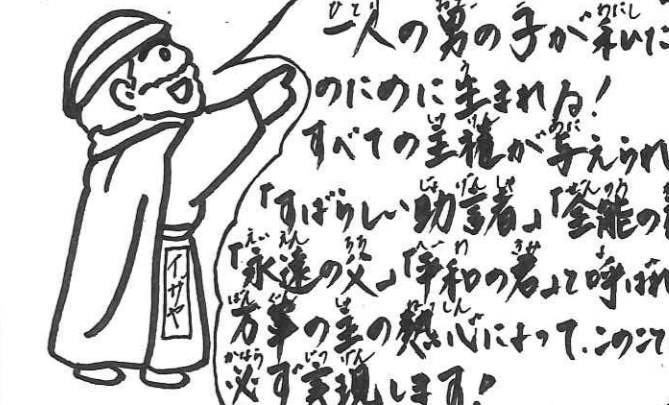 一人の男の子が私た
のために生まれる!
すべての主権が与えられ
「すばらしい助言者」「全能の
「永遠の父」「平和の君」と呼ばれ
万軍の主の熱心によって、このこと
必ず実現します!
イザヤ